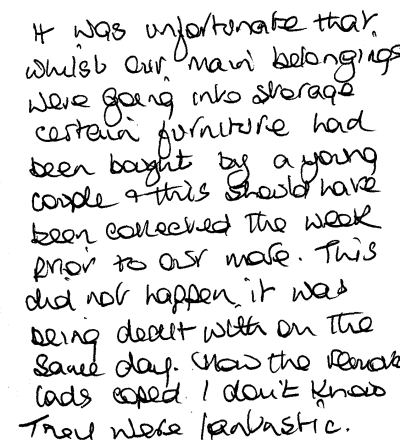 It was unfortunate that
whilst our main belongings
were going into storage
certain furniture had
been bought by a young
couple & this should have
been collected the week
prior to our move. This
did not happen, it was
being dealt with on the
same day. How the removal
lads coped I don't know
They were fantastic.